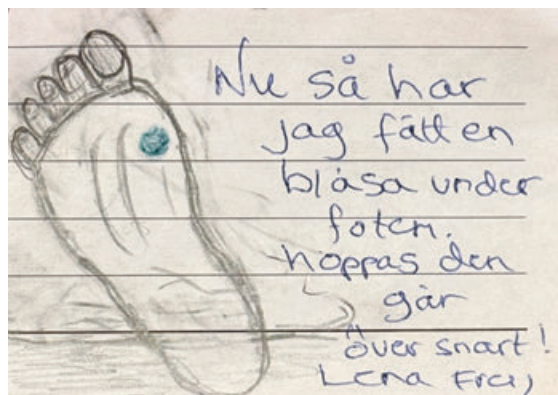 Nu så har
jag fått en
blåsa under
foten.
hoppas den
går
över snart!
Lena